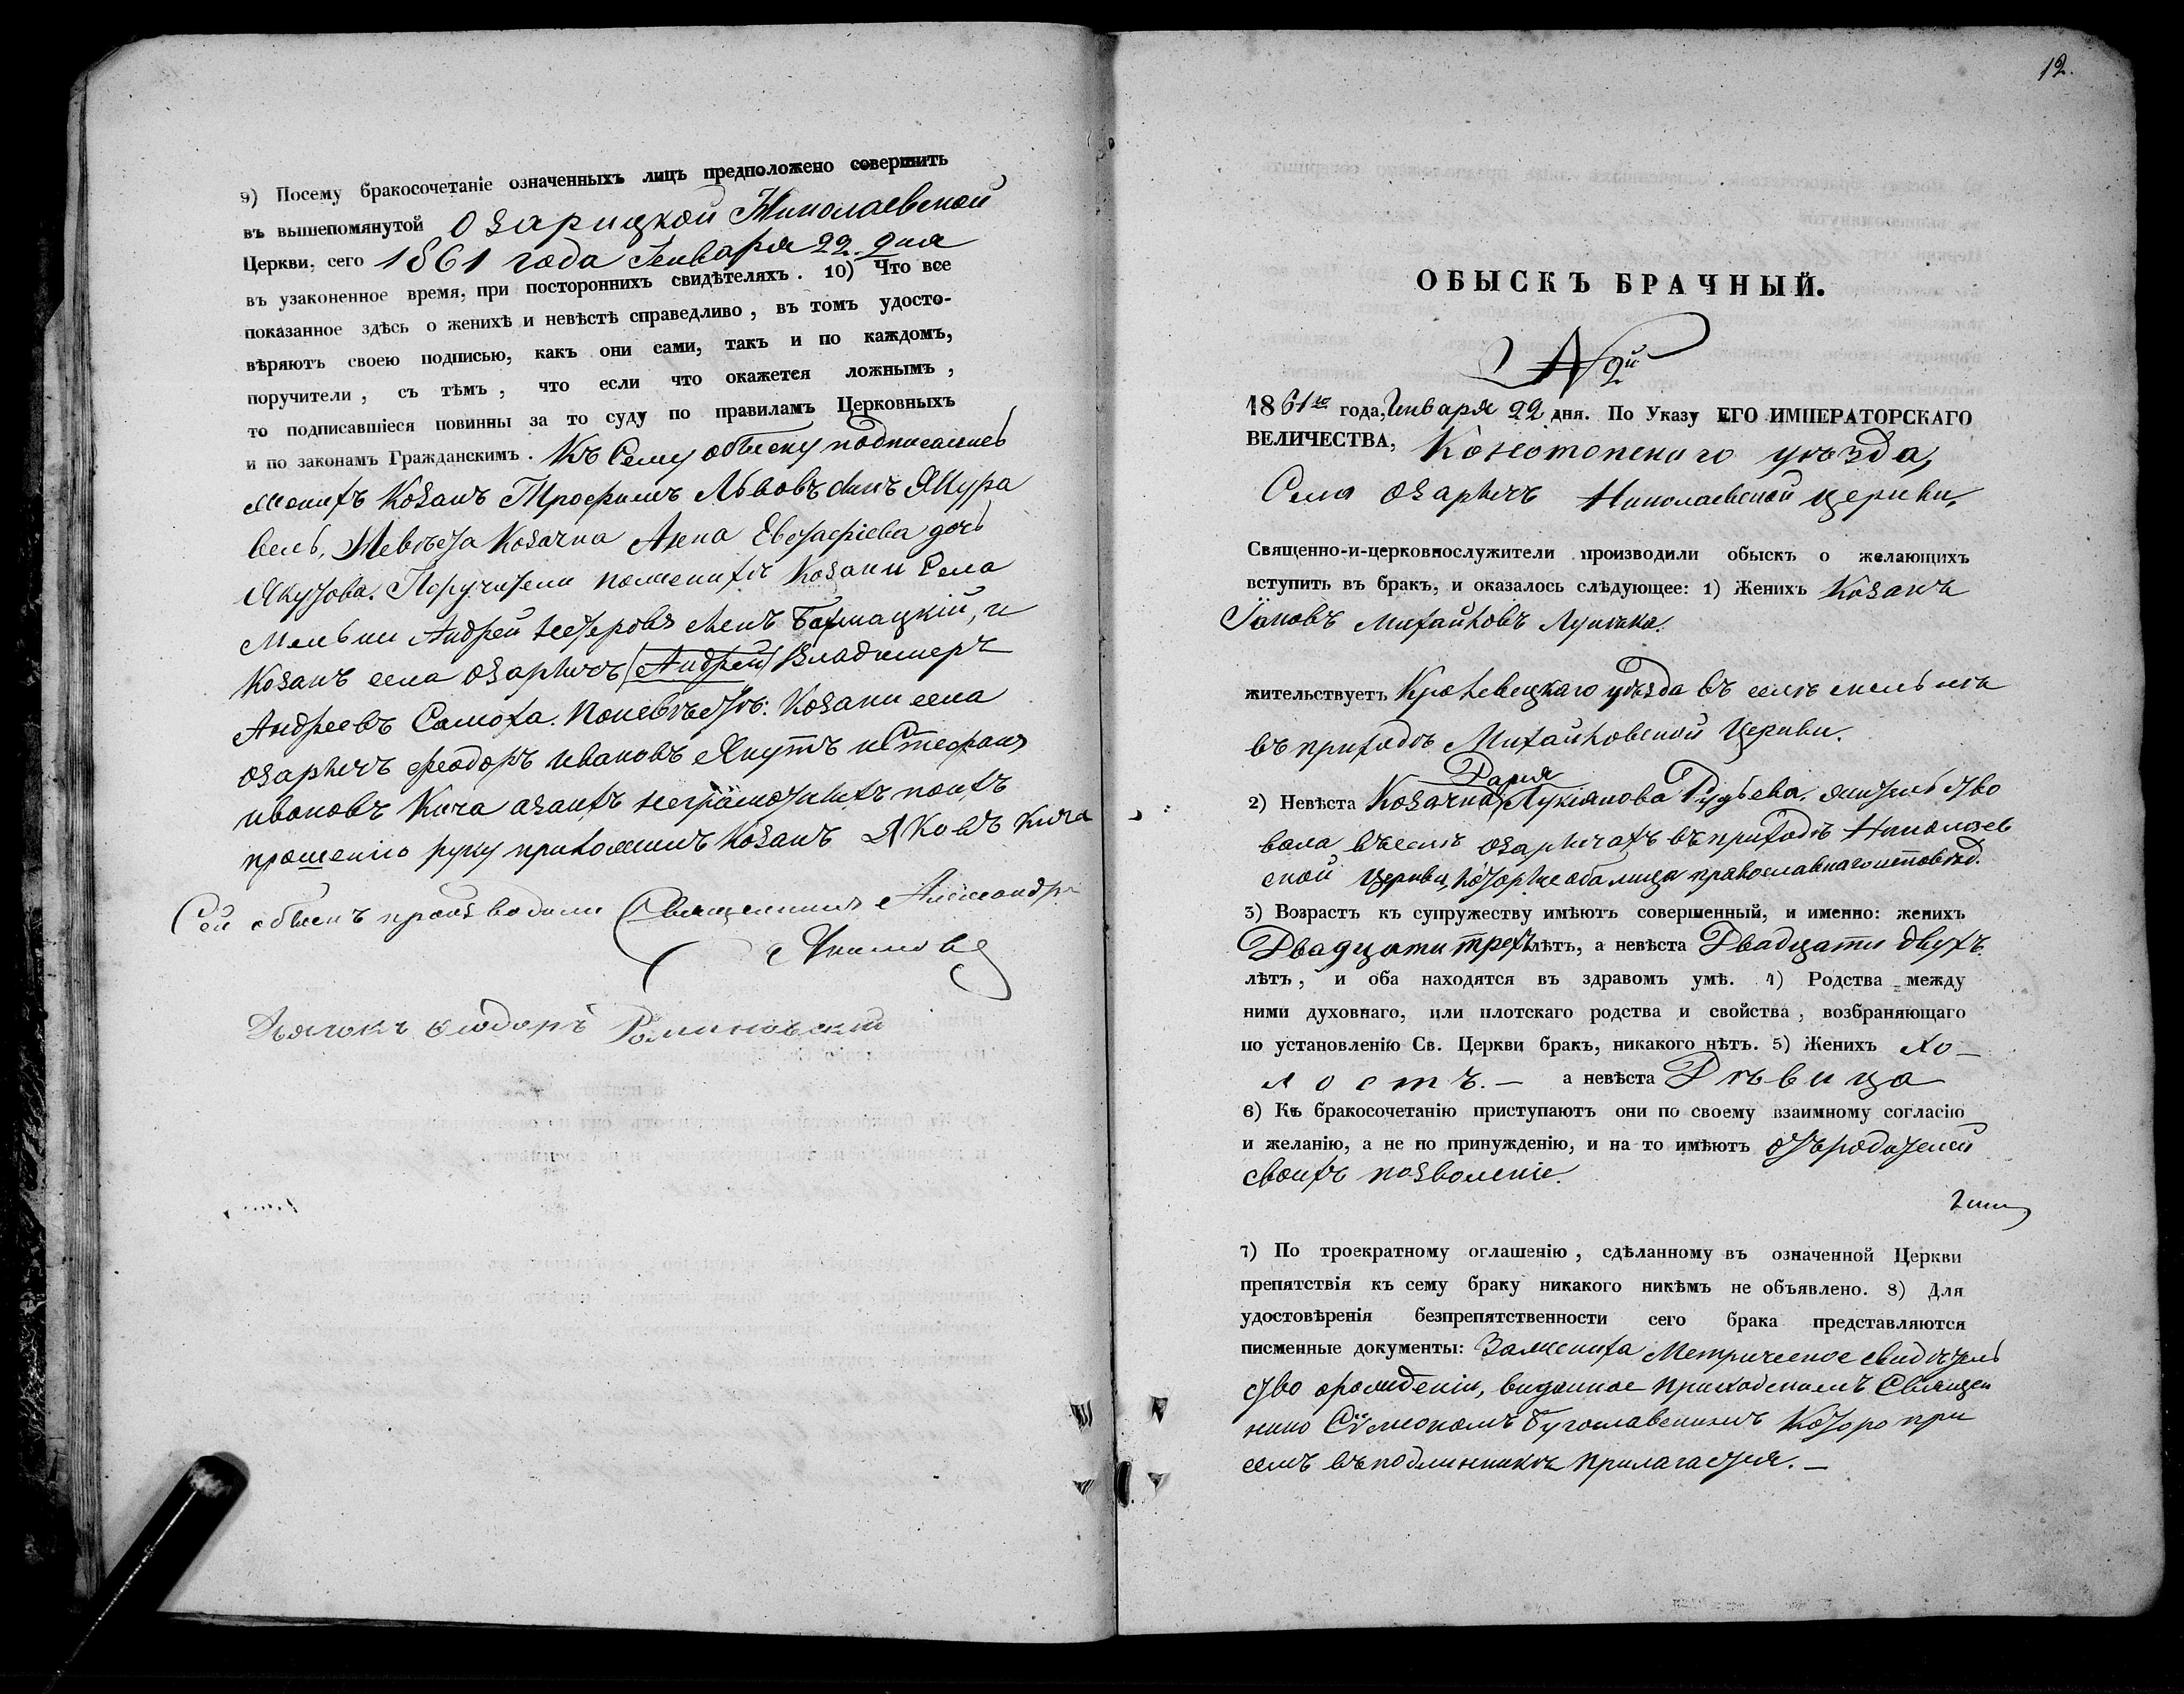 9) Посему бракосочетаніе означенныхъ лицъ предположено совершить
въ вышепомянутой Озарицкой Николаевской
Церкви, сего 1861 года Генваря 22. дня
въ узаконенное время, при постороннихъ свидѣтеляхъ. 10) Что все
показанное здѣсь о женихѣ и невѣстѣ справедливо, въ томъ удосто-
вѣряютъ своею подписью, какъ они сами, такъ и по каждомъ,
поручители, съ тѣмъ, что если что окажется ложнымъ,
то подписавшіеся повинны за то суду по правиламъ Церковныхъ
и по законамъ Гражданскимъ. Къ Сему обыску подписались
женихъ Козакъ Трофимъ Львовъ сынъ
Невѣста Козачка Анна дочь
Якутова. Поручители по женихѣ Козаки Села
Андрей сынъ и
Козакъ села Озаричъ (Андрей) Владимеръ
Андреевъ Самоха. По невѣстѣ: Козаки села
Озаричъ Феодоръ Ивановъ Якутъ и Стефанъ
Ивановъ Кича а за ихъ неграмотныхъ по ихъ
прошенію руку приложилъ Козакъ Яковъ Кича
Сей обыскъ производили Священникъ Александръ
Дьячокъ Ѳеодоръ
12.
ОБЫСКЪ БРАЧНЫЙ.
№ 2й
1861го года, Генваря 22 дня. По Указу ЕГО ИМПЕРАТОРСКАГО
ВЕЛИЧЕСТВА, Конотопскаго уѣзда,
Села Озаричъ Николаевской церкви,
Священно-и-церковнослужители производили обыскъ о желающихъ
вступить въ бракъ, и оказалось слѣдующее: 1) Женихъ Козакъ
Іаковъ Михайловъ
жительствуетъ Кролевецкаго уѣзда въ селѣ
въ приходѣ Михайловской Церкви.
Дарія
2) Невѣста Козачка Лукіянова жительство
вала въ селѣ Озаричахъ въ приходѣ Николаев
ской Церкви, которые оба лица православнаго исповѣд.
3) Возрастъ къ супружеству имѣютъ совершенный, и именно: женихъ
Двадцати трехъ лѣтъ, а невѣста Двадцати двухъ
лѣтъ, и оба находятся въ здравомъ умѣ. 4) Родства между
ними духовнаго, или плотскаго родства и свойства, возбраняющаго
по установленію Св. Церкви бракъ, никакого нѣтъ. 5) Женихъ Хо-
лостъ. — а невѣста Дѣвица
6) Къ бракосочетанію приступаютъ они по своему взаимному согласію
и желанію, а не по принужденію, и на то имѣютъ отъ родителей
своихъ позволеніе.
7) По троекратному оглашенію, сдѣланному въ означенной Церкви
препятствія къ сему браку никакого никѣмъ не объявлено. 8) Для
удостовѣренія безпрепятственности сего брака представляются
писменные документы: За жениха Метрическое свидѣтель
ство о рожденіи, виданное приходскимъ Священ
нико Сѵмеономъ Бугославскимъ Которо при
семъ въ подлинникѣ прилагается. —